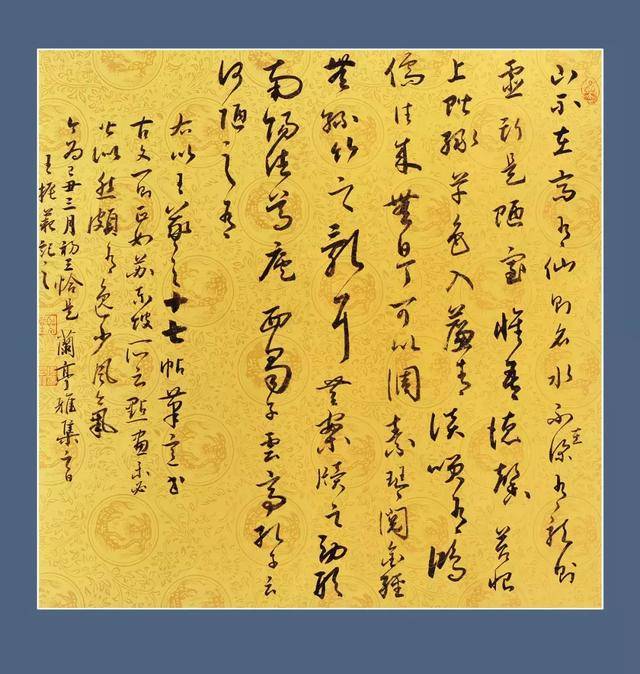 山不在高有仙则名水不在深有龍则
靈斯是陋室惟吾德馨苔痕
上階綠草色入簾青談笑有鴻
儒往來無白丁可以調素琴閱金經
無絲竹之亂耳無案牘之勞形
南陽諸葛廬西蜀子雲亭孔子云
何陋之有
右以王羲之十七帖筆意書
古文一百正如蘇东坡所云點畫未必
皆似然頗有逸少風氣
今为己丑三月初三恰是蘭亭雅集之日
王振記之